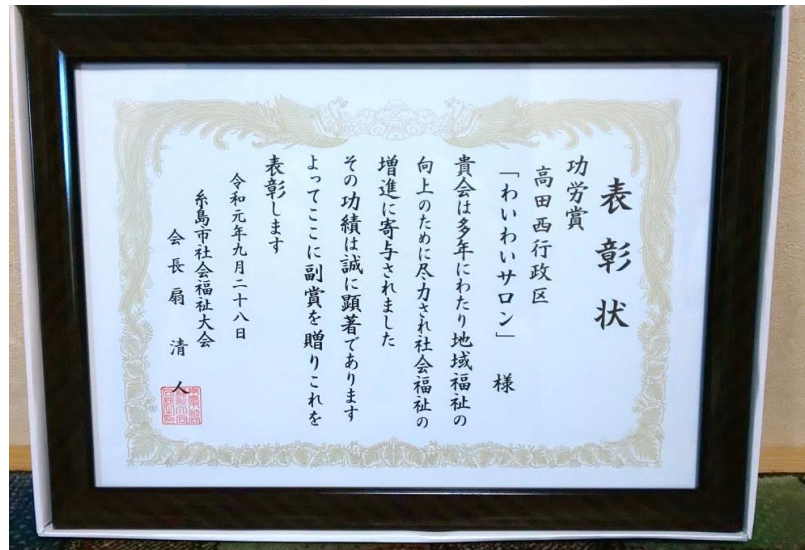 表彰状
功労賞
高田西行政区
「わいわいサロン」 様
貴会は多年にわたり地域福祉の
向上のために尽力され社会福祉の
増進に寄与されました
その功績は誠に顕著であります
よってここに副賞を贈りこれを
表彰します
令和元年九月二十八日
糸島市社会福祉大会
会長 扇 清人